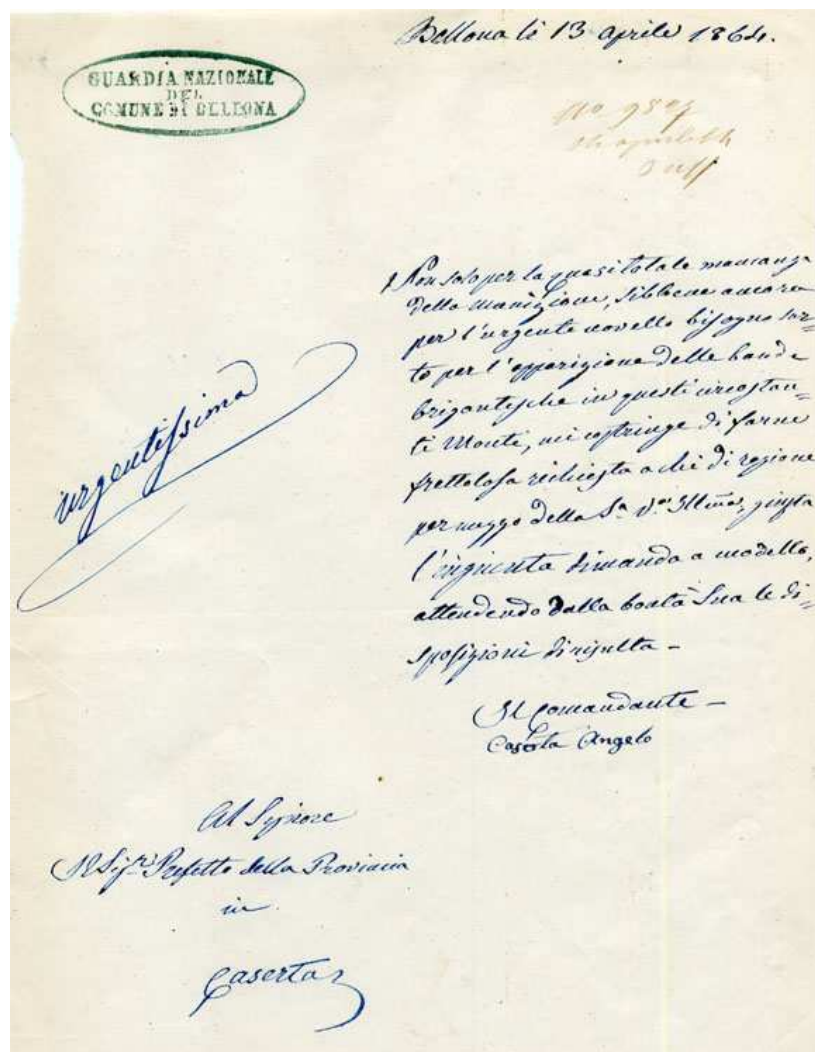 Bellona li 13 aprile 1864.
GUARDIA NAZIONALE
DEL
COMUNE DI BELLONA
No
Non solo per la quasi totale mancanza
della munizione, sibbene ancora
per l'urgente novello bisogno sor=
to per l'apparizione delle bande
brigantesche in questi circostan=
ti Monti, mi costringe di farne
frettolosa richiesta a chi di ragione
per mezzo della Sa. Va. Illma, giusta
l'inquieta dimanda a modello,
attendendo dalla bontà Sua le di=
sposizioni di risulta -
urgentissima
Il Comandante -
Casèrta Angelo
Al Signore
Il Sigr. Prefetto della Provincia
in
Caserta